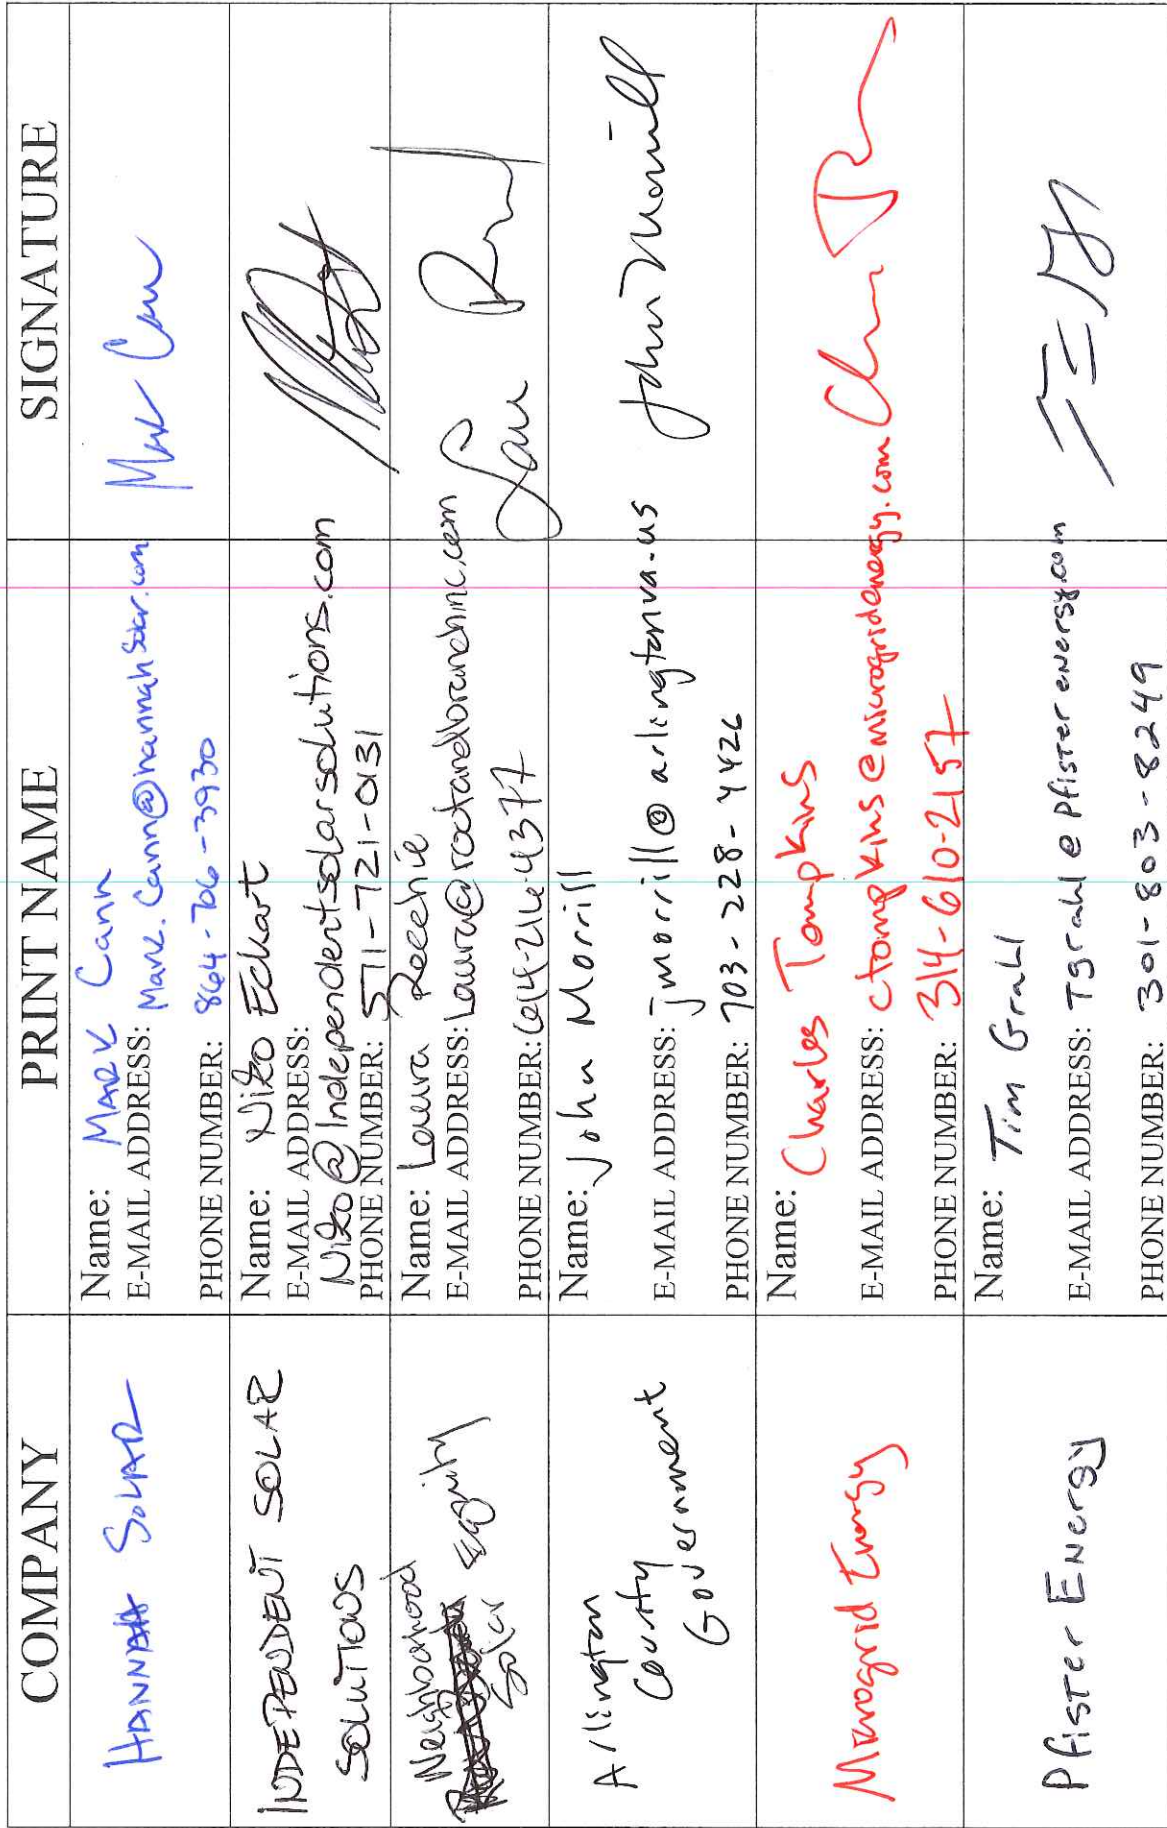 COMPANY
PRINT NAME
SIGNATURE
HANNAH SOLAR
Name: MARK Cann
E-MAIL ADDRESS: Mark.Cann@hannahsolar.com
PHONE NUMBER: 864-706-3930
Mark Cann
INDEPENDENT SOLAR
SOLUTIONS
Name: Niko Eckart
E-MAIL ADDRESS:
Niko@Independentsolarsolutions.com
PHONE NUMBER: 571-721-0131
Neighborhood
Solar Equity
Name: Laura Recchie
E-MAIL ADDRESS: Laura@rootandbranchinc.com
PHONE NUMBER: 614-216-4377
Arlington
County
Government
Name: John Morrill
E-MAIL ADDRESS: jmorrill@arlingtonva.us
PHONE NUMBER: 703-228-4426
John Morrill
Microgrid Energy
Name: Charles Tompkins
E-MAIL ADDRESS: ctompkins@microgridenergy.com
PHONE NUMBER: 314-610-2157
Pfister Energy
Name: Tim Grahl
E-MAIL ADDRESS: Tgrahl@pfisterenergy.com
PHONE NUMBER: 301-803-8249